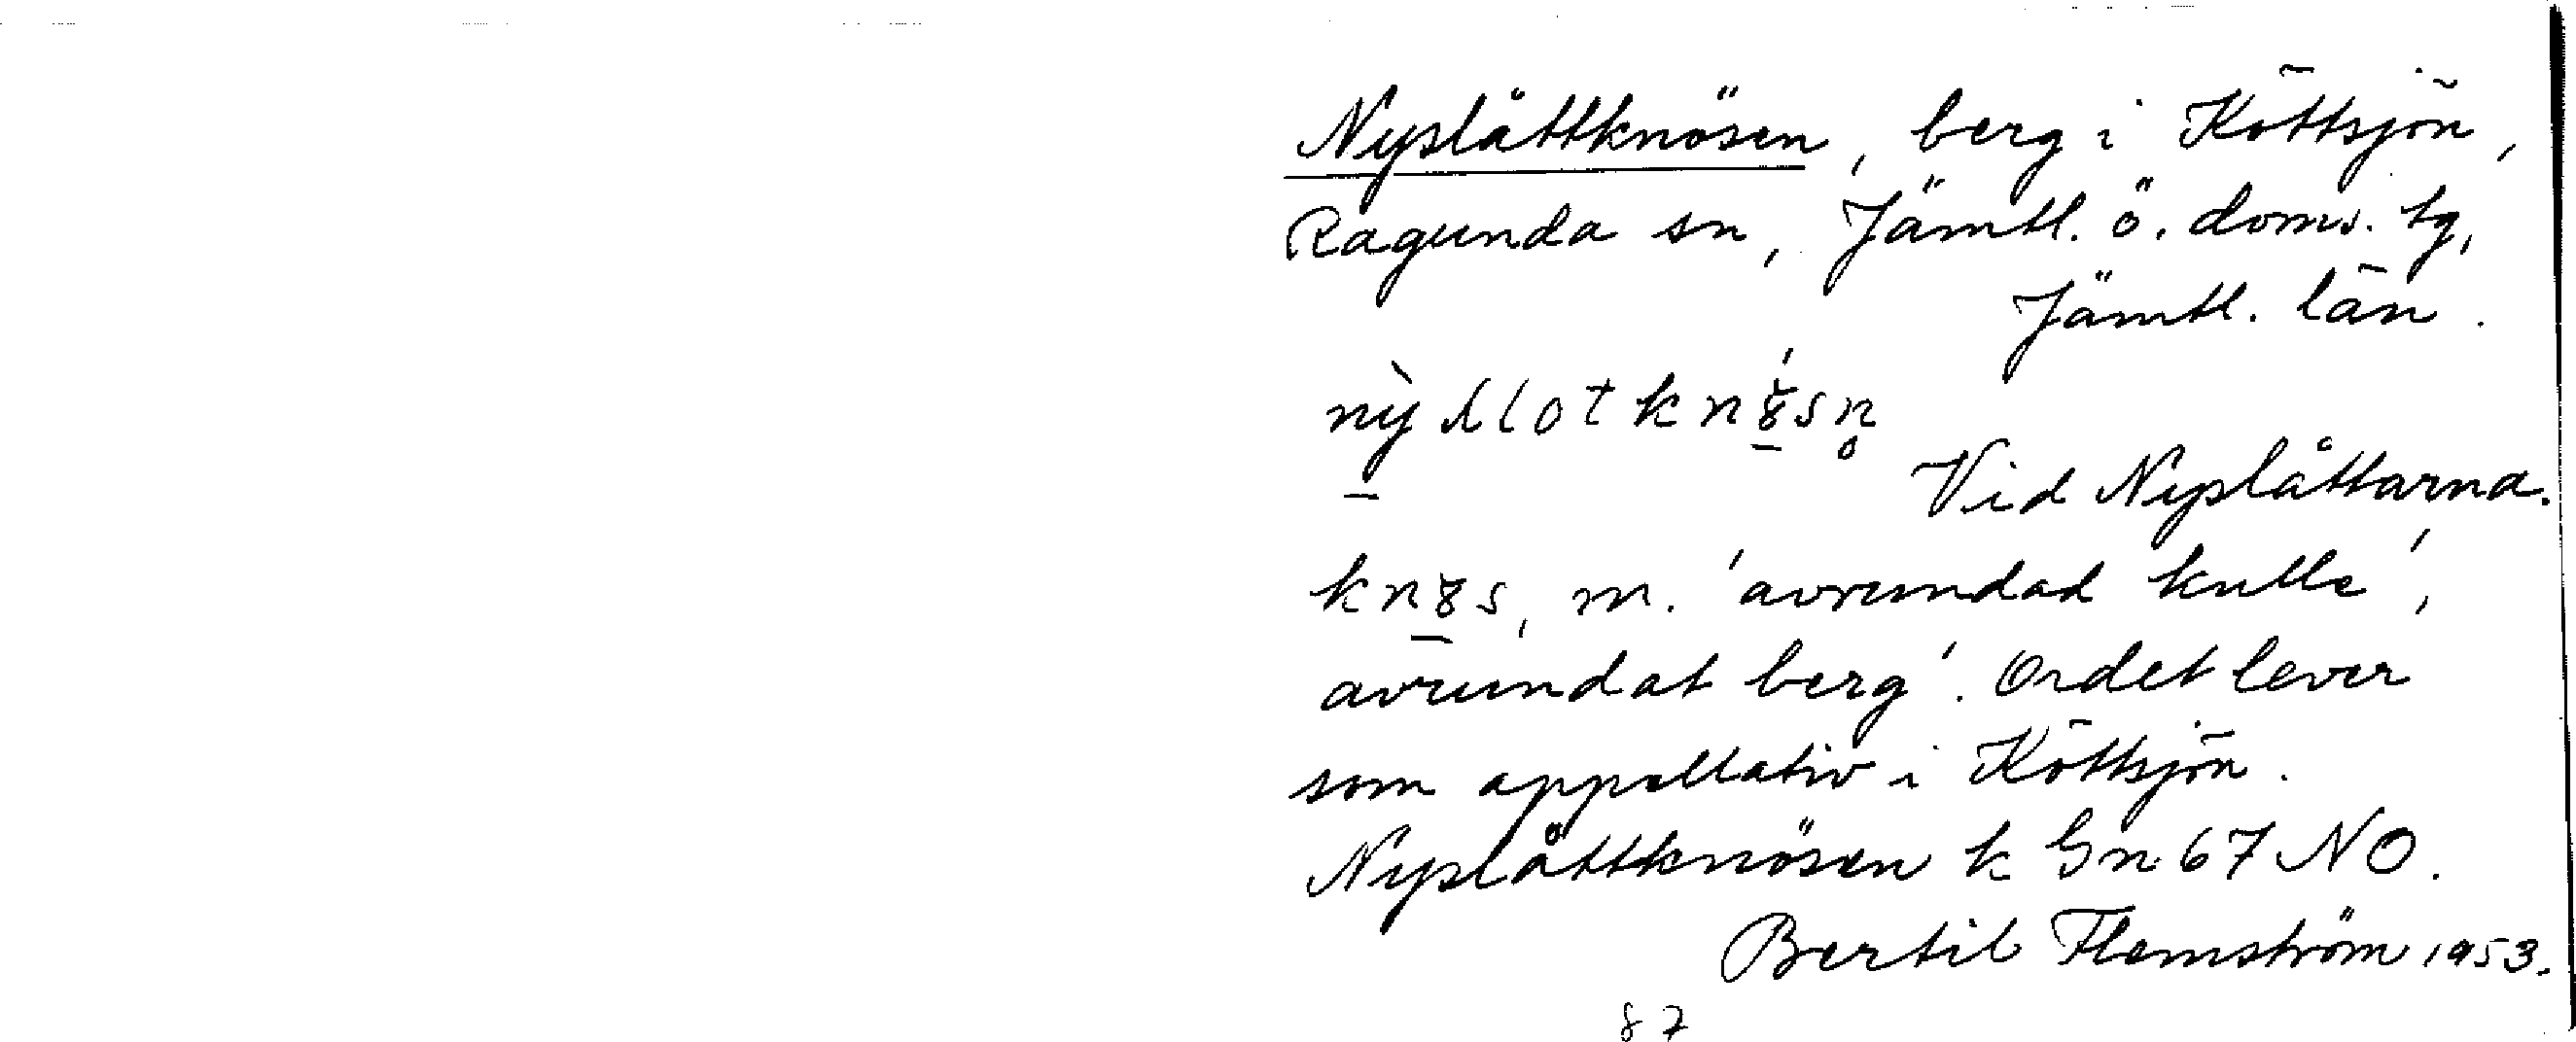 Nyslåttknösen, berg i Köttsjön,
Ragunda sn, Jämtl. ö. doms. tg,
Jämtl. län.
Vid Nyslåttarna.
m. 'avrundad kulle',
avrundat berg'. Ordet lever
som appellativ i Köttsjön.
Nyslåttknösen k Gn 67 NO.
Bertil Flemström 1953.
87